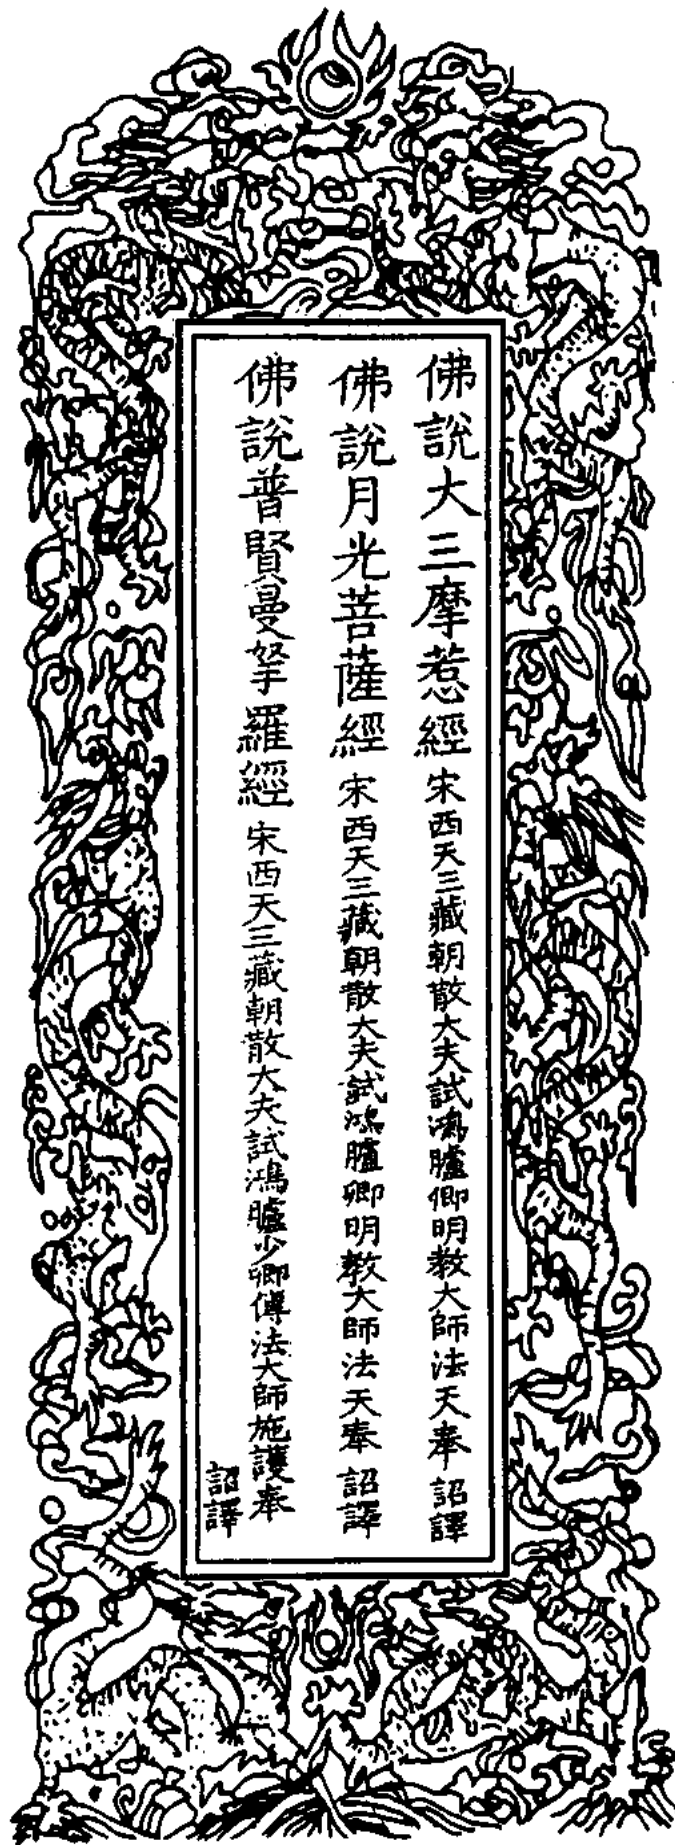 佛說大三摩惹經 宋西天三藏朝散大夫試鴻臚卿明教大師法天奉 詔譯
佛說月光菩薩經 宋西天三藏朝散大夫試鴻臚卿明教大師法天奉 詔譯
佛說普賢曼拏羅經 宋西天三藏朝散大夫試鴻臚少卿傳法大師施護奉
詔譯